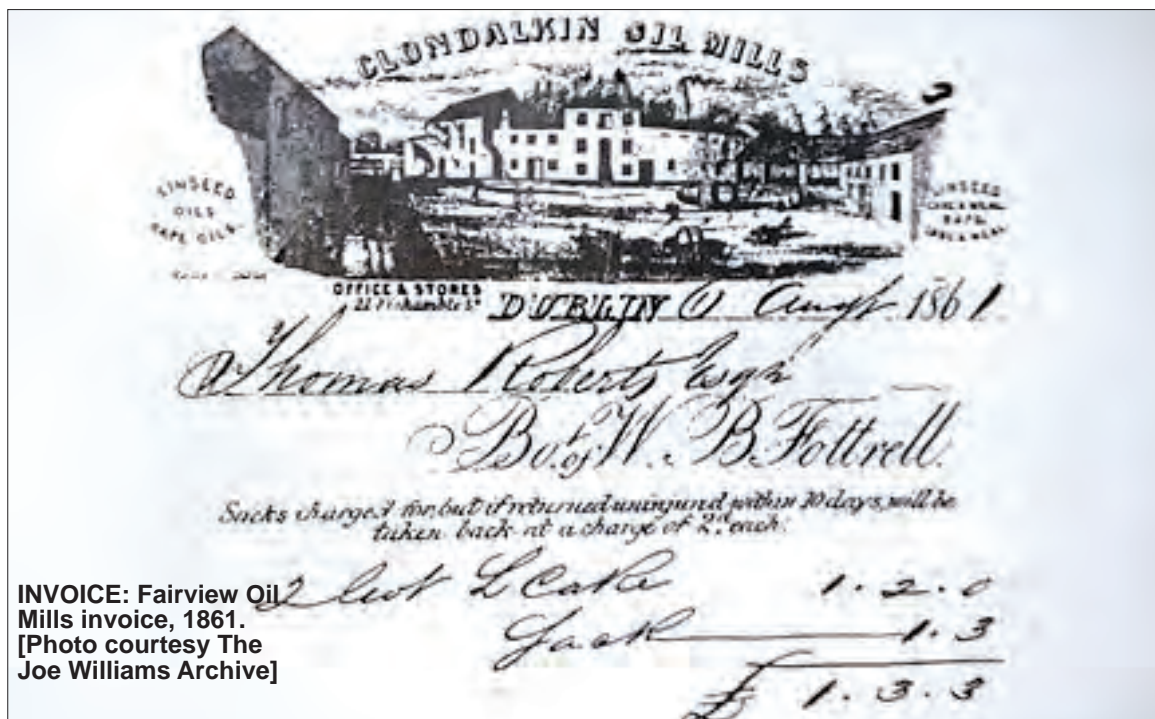 CLONDALKIN OIL MILLS
LINSEED
OILS
RAPE OILS
LINSEED
CAKE & MEAL
RAPE
CAKE & MEAL
OFFICE & STORES
DUBLIN 6 Augt 1861
Thomas Roberts Esqr
Bot. of W. B. Fottrell.
Sacks charged for, but if returned uninjured within 10 days, will be
taken back at a charge of 2d. each.
2 Cwt L Cake 1 . 2 . 0
Sack 1 . 3
£ 1 . 3 . 3
INVOICE: Fairview Oil
Mills invoice, 1861.
[Photo courtesy The
Joe Williams Archive]